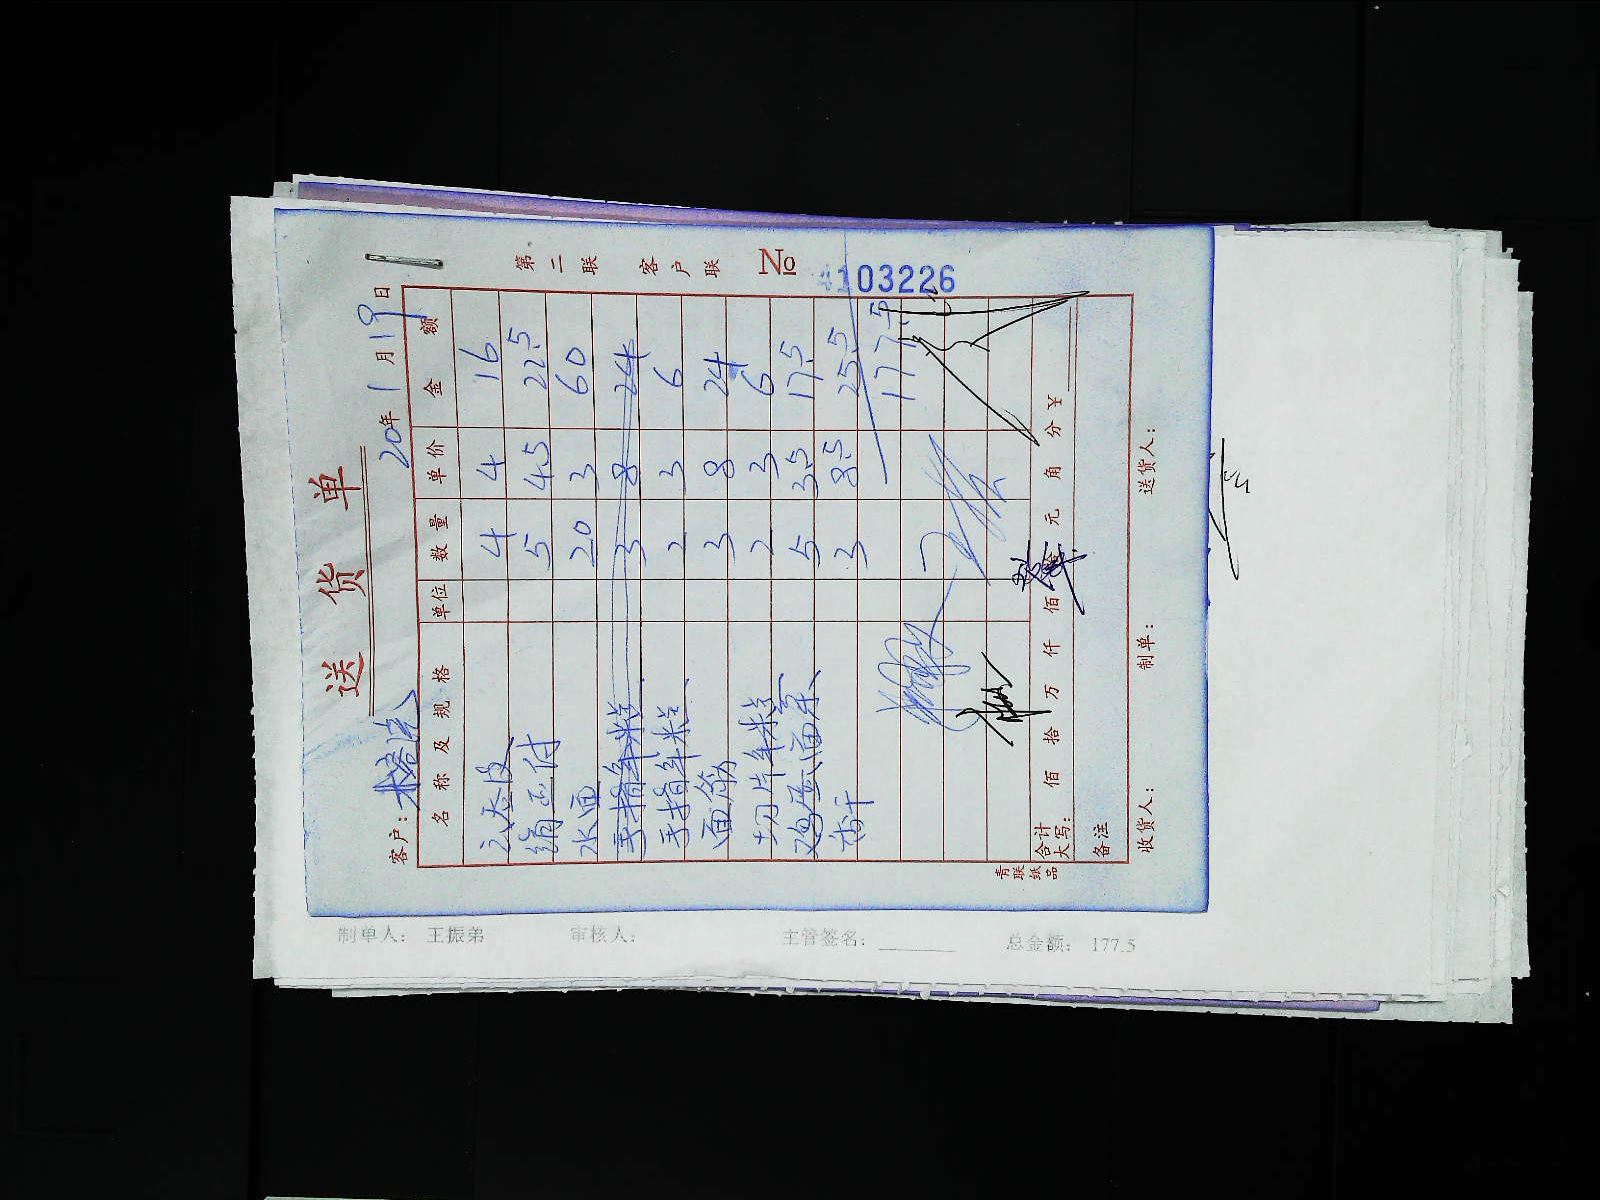 送货单
第二联 客户联 No 4103226
客户: 20年1月19日
名称及规格 单位 数量 单价 金额
4 4 16
5 4.5 22.5
水面 20 3 60
手指年米兰 3 8 24
手指年米兰、 2 3 6
面筋 3 8 24
切片年米兰、 2 3 6
鸡蛋面条、 5 3.5 17.5
香干 3 8.5 25.5
177.5
合计大写: 佰 拾 万 仟 佰 拾 元 角 分 ¥
备注
收货人: 制单: 送货人:
青联纸品
制单人: 王振弟 审核人: 主管签名: 总金额: 177.5